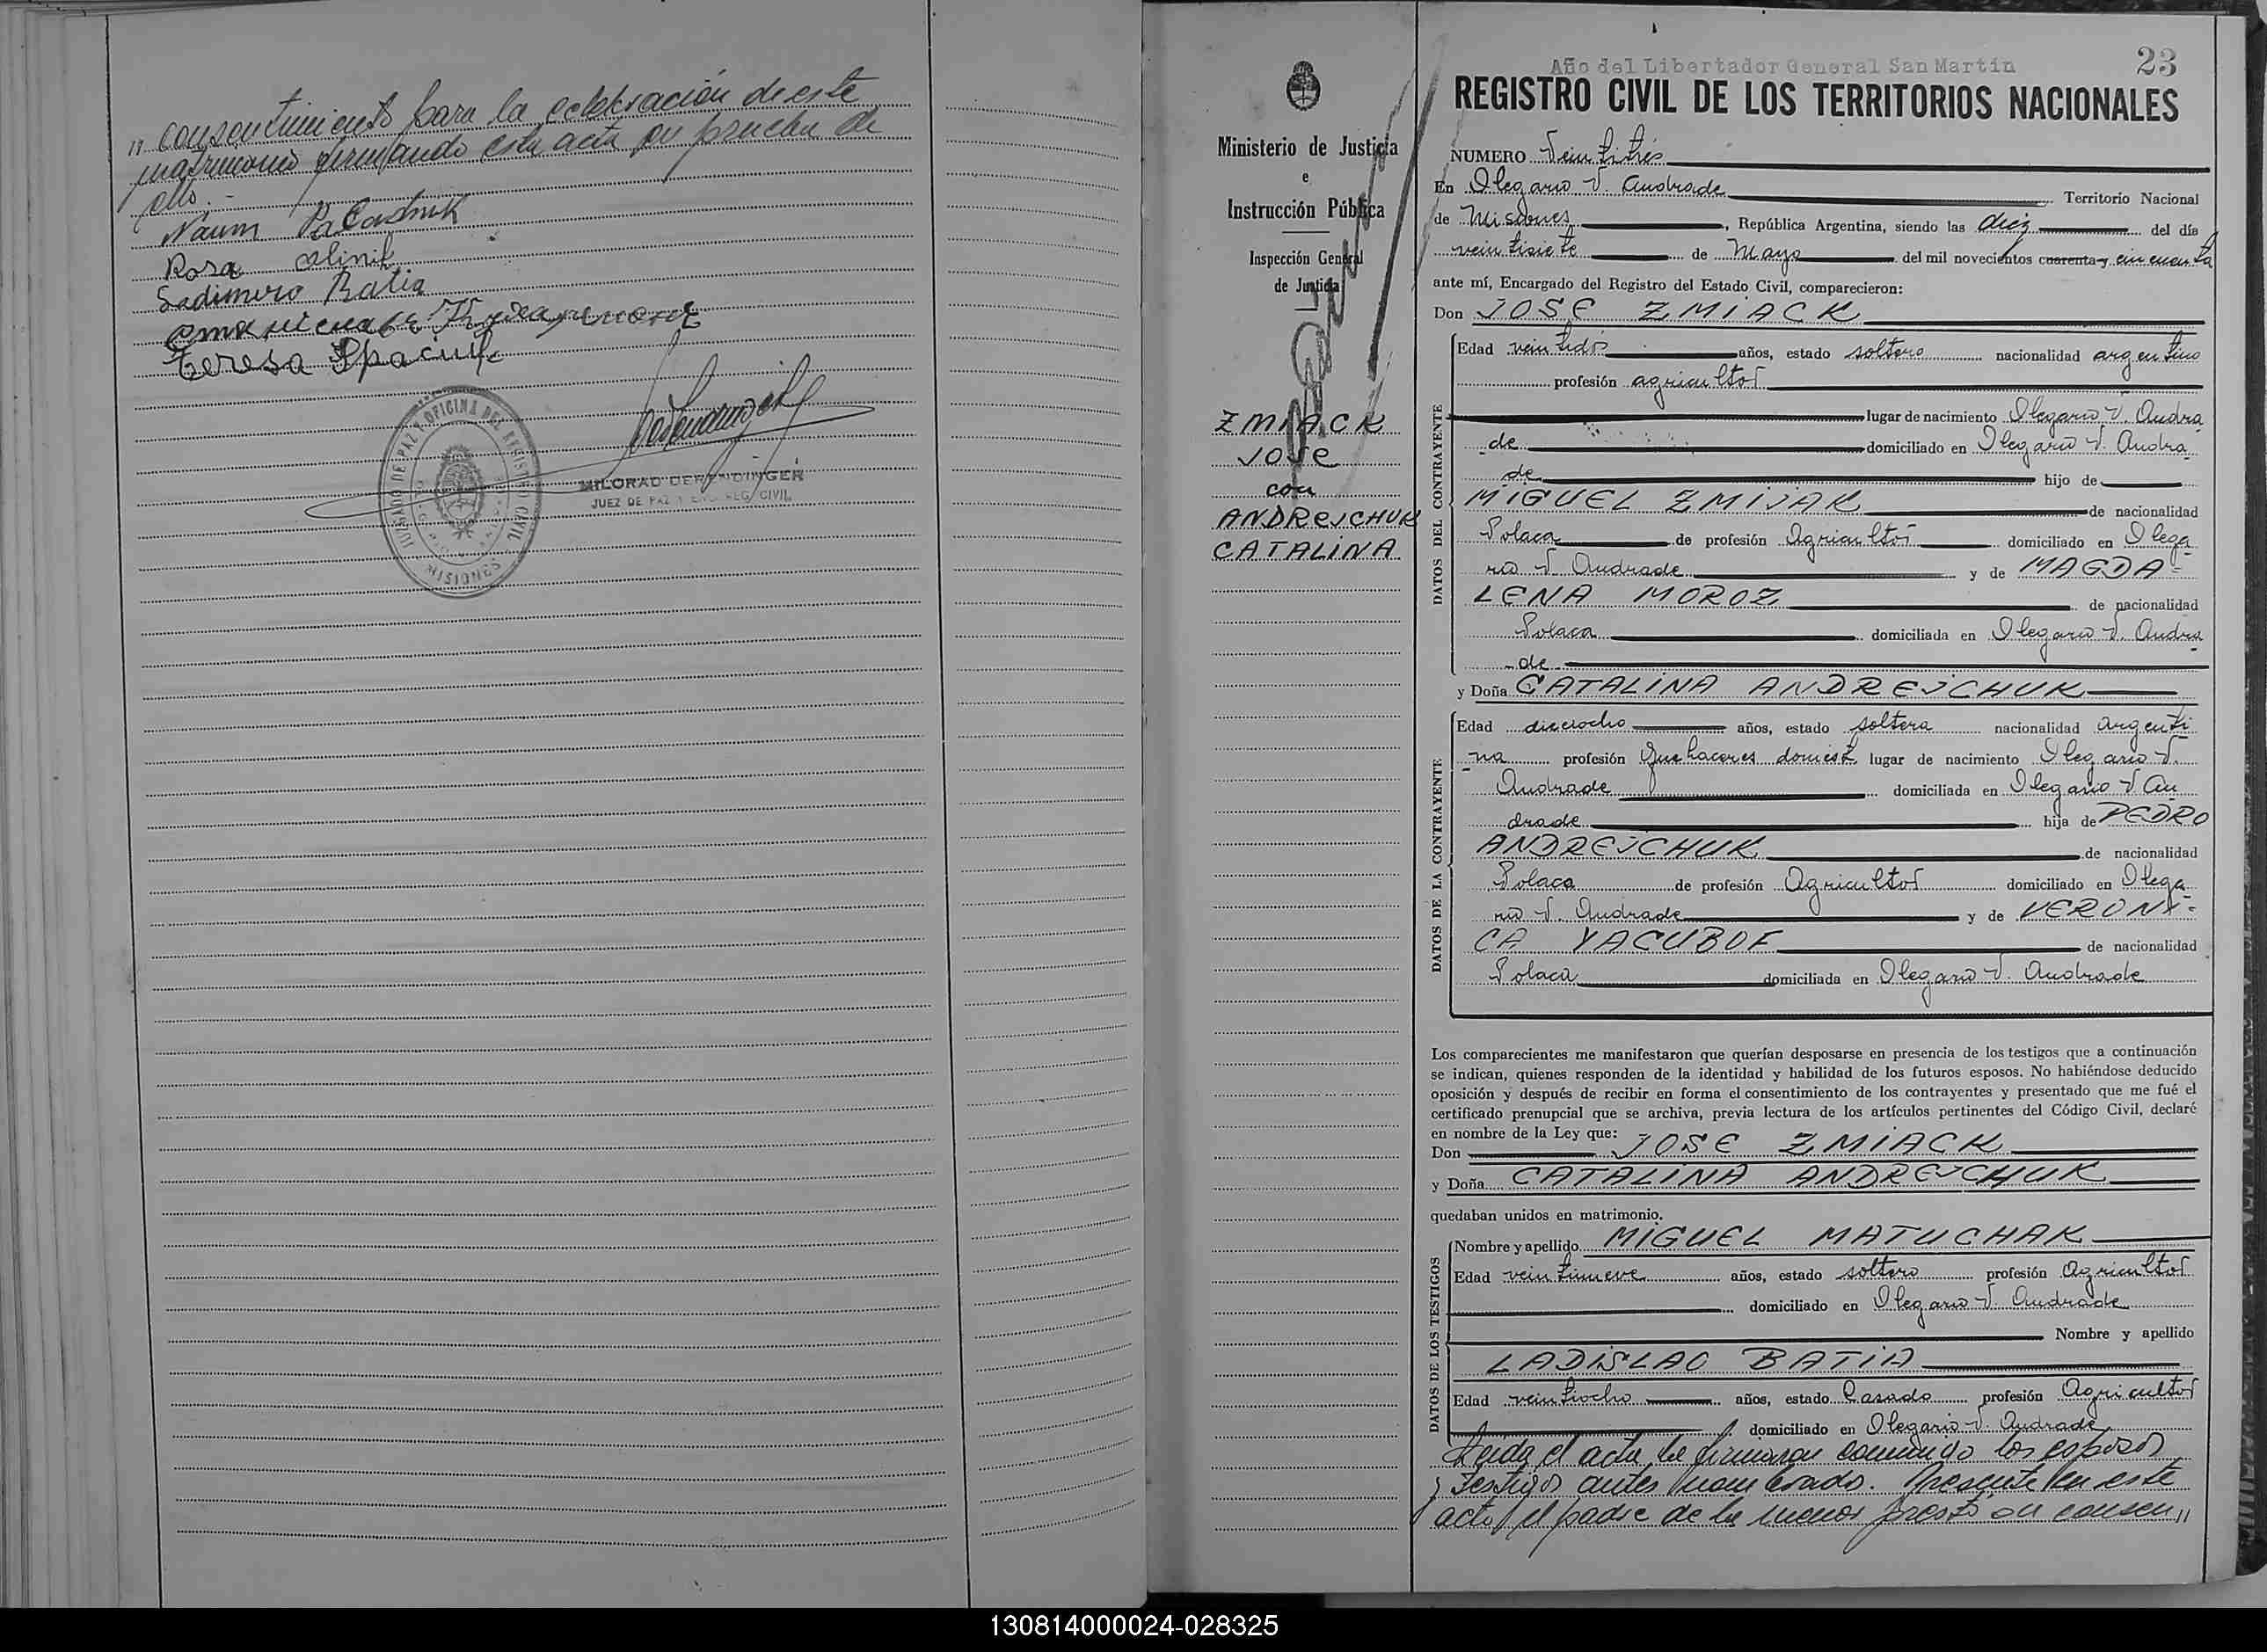 " consentimiento para la celebración de este
matrimonio firmando esta acta en prueba de
ello.-
Naum
Rosa
Ladimiro Batia
Teresa Spaciuk
JUZGADO DE PAZ Y OFICINA DEL REGISTRO CIVIL
MISIONES
MILORAD
JUEZ DE PAZ Y ENC. REG. CIVIL
Ministerio de Justicia
e
Instrucción Pública
Inspección General
de Justicia
ZMIACK
JOSE
con
ANDREJCHUK
CATALINA
23
Año del Libertador General San Martín
REGISTRO CIVIL DE LOS TERRITORIOS NACIONALES
NUMERO Veintitrés
En Olegario V. Andrade Territorio Nacional
de Misiones, República Argentina, siendo las diez del día
veintisiete de Mayo del mil novecientos cuarenta y cincuenta
ante mí, Encargado del Registro del Estado Civil, comparecieron:
Don JOSE ZMIACK
DATOS DEL CONTRAYENTE
Edad veintidós años, estado soltero nacionalidad argentino
profesión agricultor
lugar de nacimiento Olegario V. Andra
-de domiciliado en Olegario V. Andra-
de hijo de
MIGUEL ZMIJAK de nacionalidad
Polaca de profesión Agricultor domiciliado en Olega-
rio V. Andrade y de MAGDA=
LENA MOROZ de nacionalidad
Polaca domiciliada en Olegario V. Andra-
-de
y Doña CATALINA ANDREJCHUK
DATOS DE LA CONTRAYENTE
Edad dieciocho años, estado soltera nacionalidad argenti-
-na profesión Quehaceres domést. lugar de nacimiento Olegario V.
Andrade domiciliada en Olegario V An-
drade hija de PEDRO
ANDREJCHUK de nacionalidad
Polaca de profesión Agricultor domiciliado en Olega-
rio V. Andrade y de VERONI=
CA YACUBOF de nacionalidad
Polaca domiciliada en Olegario V. Andrade
Los comparecientes me manifestaron que querían desposarse en presencia de los testigos que a continuación
se indican, quienes responden de la identidad y habilidad de los futuros esposos. No habiéndose deducido
oposición y después de recibir en forma el consentimiento de los contrayentes y presentado que me fué el
certificado prenupcial que se archiva, previa lectura de los artículos pertinentes del Código Civil, declaré
en nombre de la Ley que:
Don JOSE ZMIACK
y Doña CATALINA ANDREJCHUK
quedaban unidos en matrimonio.
DATOS DE LOS TESTIGOS
Nombre y apellido MIGUEL MATUCHAK
Edad veintinueve años, estado soltero profesión Agricultor
domiciliado en Olegario V. Andrade
Nombre y apellido
LADISLAO BATIA
Edad veintiocho años, estado Casado profesión Agricultor
domiciliado en Olegario V. Andrade
Leida el acta la firmaron conmigo los esposos
y testigos antes nombrados. Presente en este
acto el padre de la menor prestó su consen"
130814000024-028325